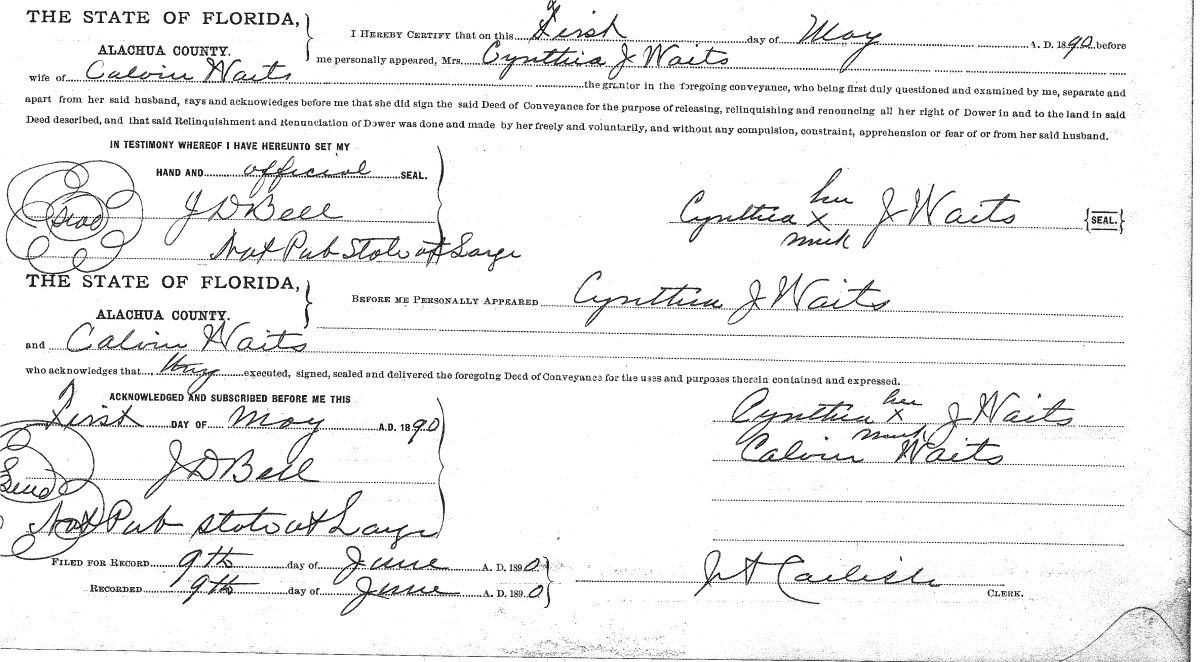 THE STATE OF FLORIDA,
ALACHUA COUNTY.
I HEREBY CERTIFY that on this First day of May A. D. 1890 before
me personally appeared, Mrs. Cynthia J Waits
wife of Calvin Waits the grantor in the foregoing conveyance, who being first duly questioned and examined by me, separate and
apart from her said husband, says and acknowledges before me that she did sign the said Deed of Conveyance for the purpose of releasing, relinquishing and renouncing all her right of Dower in and to the land in said
Deed described, and that said Relinquishment and Renunciation of Dower was done and made by her freely and voluntarily, and without any compulsion, constraint, apprehension or fear of or from her said husband.
IN TESTIMONY WHEREOF I HAVE HEREUNTO SET MY
HAND AND official SEAL.
Seal J D Bell
Not Pub State at Large
her
Cynthia x J Waits {SEAL.}
mark
THE STATE OF FLORIDA,
ALACHUA COUNTY.
BEFORE ME PERSONALLY APPEARED Cynthia J Waits
and Calvin Waits
who acknowledges that they executed, signed, sealed and delivered the foregoing Deed of Conveyance for the uses and purposes therein contained and expressed.
ACKNOWLEDGED AND SUBSCRIBED BEFORE ME THIS
First DAY OF May A.D. 1890
Seal J D Bell
Not Pub State at Large
her
Cynthia x J Waits
mark
Calvin Waits
FILED FOR RECORD 9th day of June A. D. 1890
RECORDED 9th day of June A. D. 1890
Carlisle
CLERK.